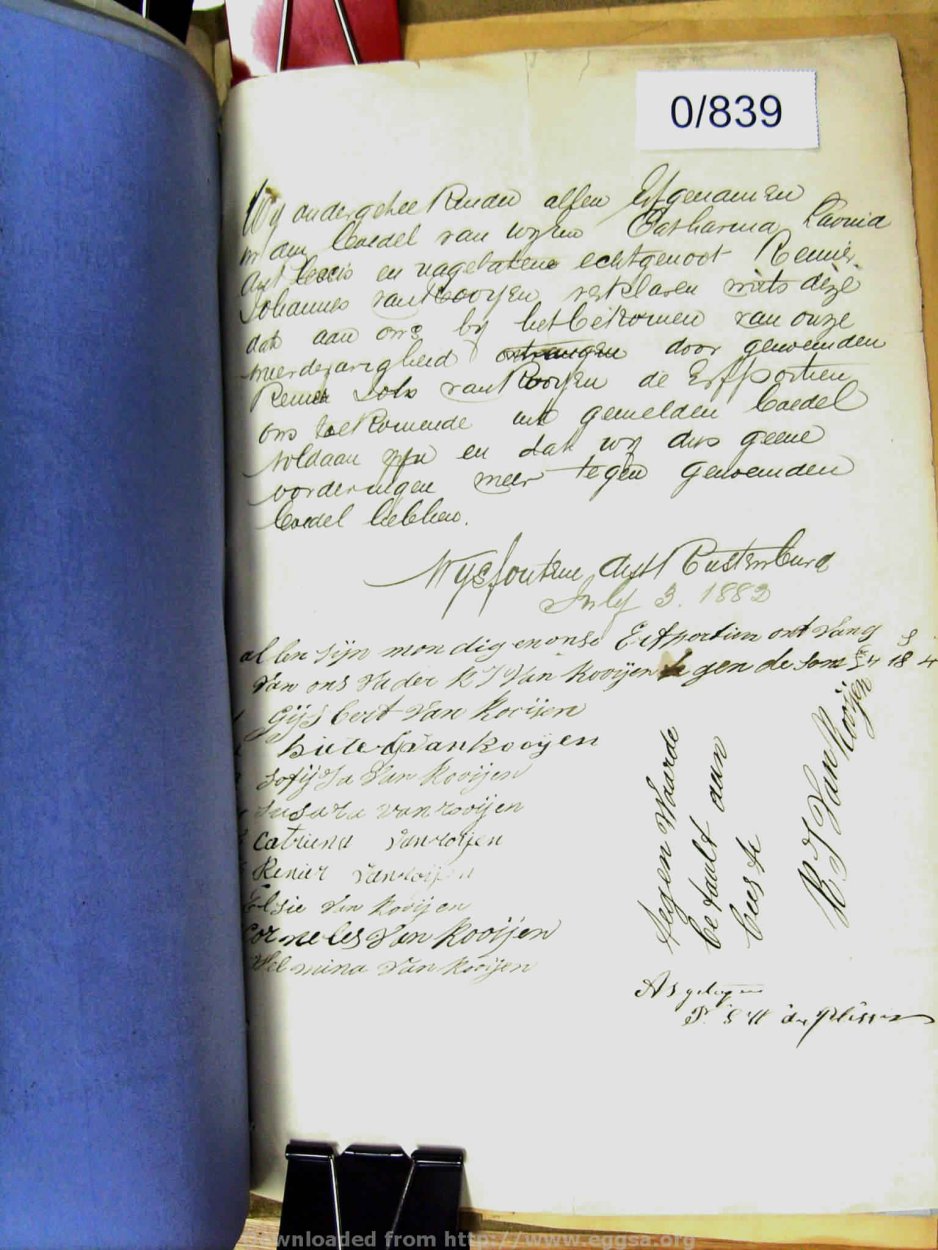 0/839
Wij ondergeteekenden allen Erfgenamen
in den boedel van wijlen Catharina
en nagelatene echtgenoot Renier
Johannes van Rooyen verklaren mits deze
dat aan ons bij het bekomen van onze
meerderjarigheid ontvangen door genoemden
Renier Joh van Rooyen de Erfportien
ons toekomende uit gemelden boedel
voldaan zijn en dat wij dus geene
vorderingen meer tegen genoemden
boedel hebben.
Wysfontein dist Rustenburg
July 3. 1883
allen sijn mondig en onse Erfportien ontvang
van ons vader R J Van Rooijen de som 18 4
Gijsbert Van Rooijen
Pieter G Van Rooijen
Sofija Van Rooijen
Susara van rooijen
Catriena van rooijen
Renier van rooijen
Elsie van Rooijen
Corneles Van Rooijen
Welmina van Rooijen
tegen Waarde
betaalt aan
beeste
R J Van Rooijen
As getuge
du Plessis
Downloaded from http://www.eggsa.org